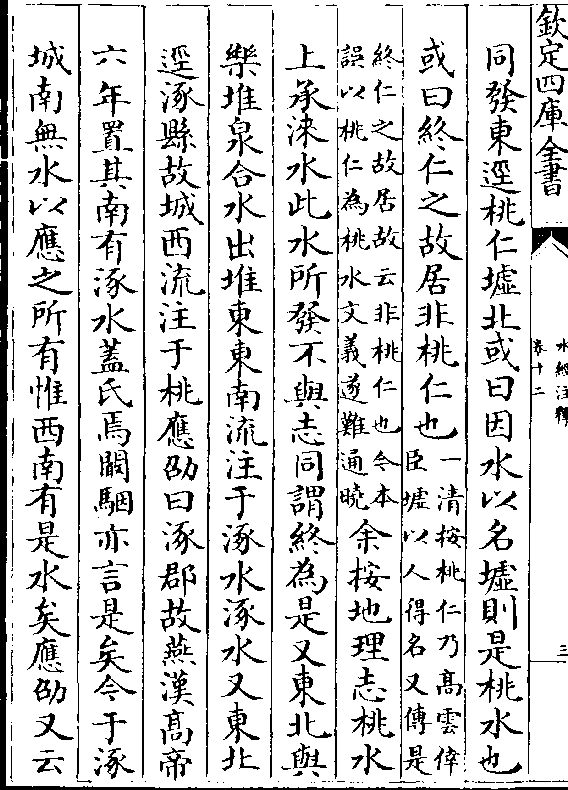 欽定四庫全書
水經注釋
卷十二
三
同發東逕桃仁墟北或曰因水以名墟則是桃水也
或曰終仁之故居非桃仁也一清按桃仁乃高雲倖臣墟以人得名又傳是
終仁之故居故云非桃仁也今本誤以桃仁為桃水文義遂難通曉余按地理志桃水
上承淶水此水所發不與志同謂終為是又東北與
樂堆泉合水出堆東東南流注于涿水涿水又東北
逕涿縣故城西流注于桃應劭曰涿郡故燕漢高帝
六年置其南有涿水蓋氏焉闞駰亦言是矣今于涿
城南無水以應之所有惟西南有是水矣應劭又云